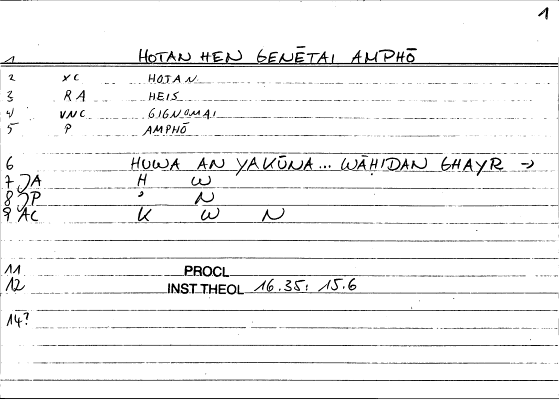 1
1 HOTAN HEN GENĒTAI AMPHŌ
2 XC HOTAN
3 RA HEIS
4 VNC GIGNOMAI
5 P AMPHŌ
6 HUWA AN YAKŪNA... WĀḤIDAN GHAYR →
7 JA H W
8 JP ʾ N
9 AC K W N
11 PROCL
12 INST THEOL 16.35: 15.6
14?